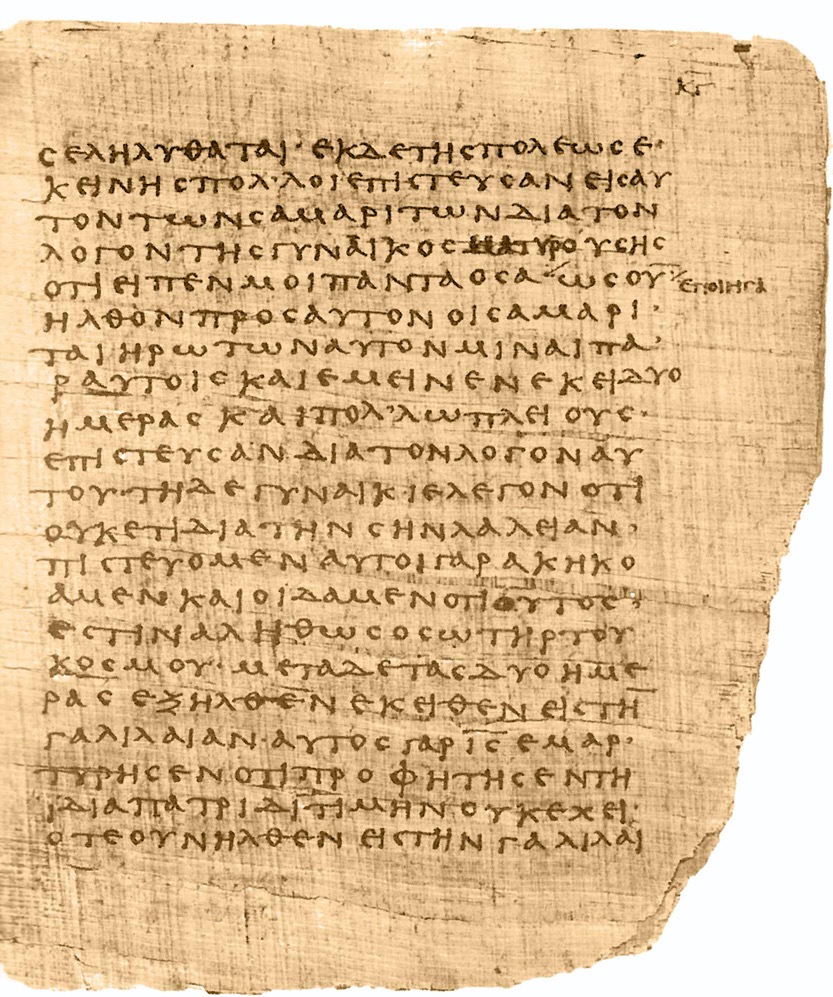 ΚΓ
ϹΕΛΗΛΥΘΑΤΑΙ· ΕΚΔΕΤΗϹΠΟΛΕΩϹΕ·
ΚΕΙΝΗϹΠΟΛ·ΛΟΙΕΠΙϹΤΕΥϹΑΝΕΙϹΑΥ
ΤΟΝΤΩΝϹΑΜΑΡΙΤΩΝΔΙΑΤΟΝ
ΛΟΓΟΝΤΗϹΓΥΝΑΙΚΟϹΜΑΤΥΡΟΥϹΗϹ
ΟΤΙΕΙΠΕΝΜΟΙΠΑΝΤΑΟϹΑ ΩϹΟΥ ΕΠΟΙΗϹΑ
ΗΛΘΟΝΠΡΟϹΑΥΤΟΝΟΙϹΑΜΑΡΙ·
ΤΑΙΗΡΩΤΩΝΑΥΤΟΝΜΙΝΑΙΠΑ·
ΡΑΥΤΟΙϹΚΑΙΕΜΕΙΝΕΝΕΚΕΙΔΥΟ
ΗΜΕΡΑϹΚΑΙΠΟΛ'ΛΩΠΛΕΙΟΥϹ·
ΕΠΙϹΤΕΥϹΑΝΔΙΑΤΟΝΛΟΓΟΝΑΥ
ΤΟΥ·ΤΗΔΕΓΥΝΑΙΚΙΕΛΕΓΟΝΟΤΙ
ΟΥΚΕΤΙΔΙΑΤΗΝϹΗΝΛΑΛΕΙΑΝ·
ΠΙϹΤΕΥΟΜΕΝΑΥΤΟΙΓΑΡΑΚΗΚΟ
ΑΜΕΝΚΑΙΟΙΔΑΜΕΝΟΤΙΟΥΤΟϹ·
ΕϹΤΙΝΑΛΗΘΩϹΟϹΩΤΗΡΤΟΥ
ΚΟϹΜΟΥ·ΜΕΤΑΔΕΤΑϹΔΥΟΗΜΕ
ΡΑϹΕΞΗΛΘΕΝΕΚΕΙΘΕΝΕΙϹΤΗ̅
ΓΑΛΙΛΑΙΑΝ·ΑΥΤΟϹΓΑΡΙ̅Ϲ̅ΕΜΑΡ·
ΤΥΡΗϹΕΝΟΤΙΠΡΟΦΗΤΗϹΕΝΤΗ
ΙΔΙΑΠΑΤΡΙΔΙΤΙΜΗΝΟΥΚΕΧΕΙ·
ΟΤΕΟΥΝΗΛΘΕΝΕΙϹΤΗΝΓΑΛΙΛΑΙ